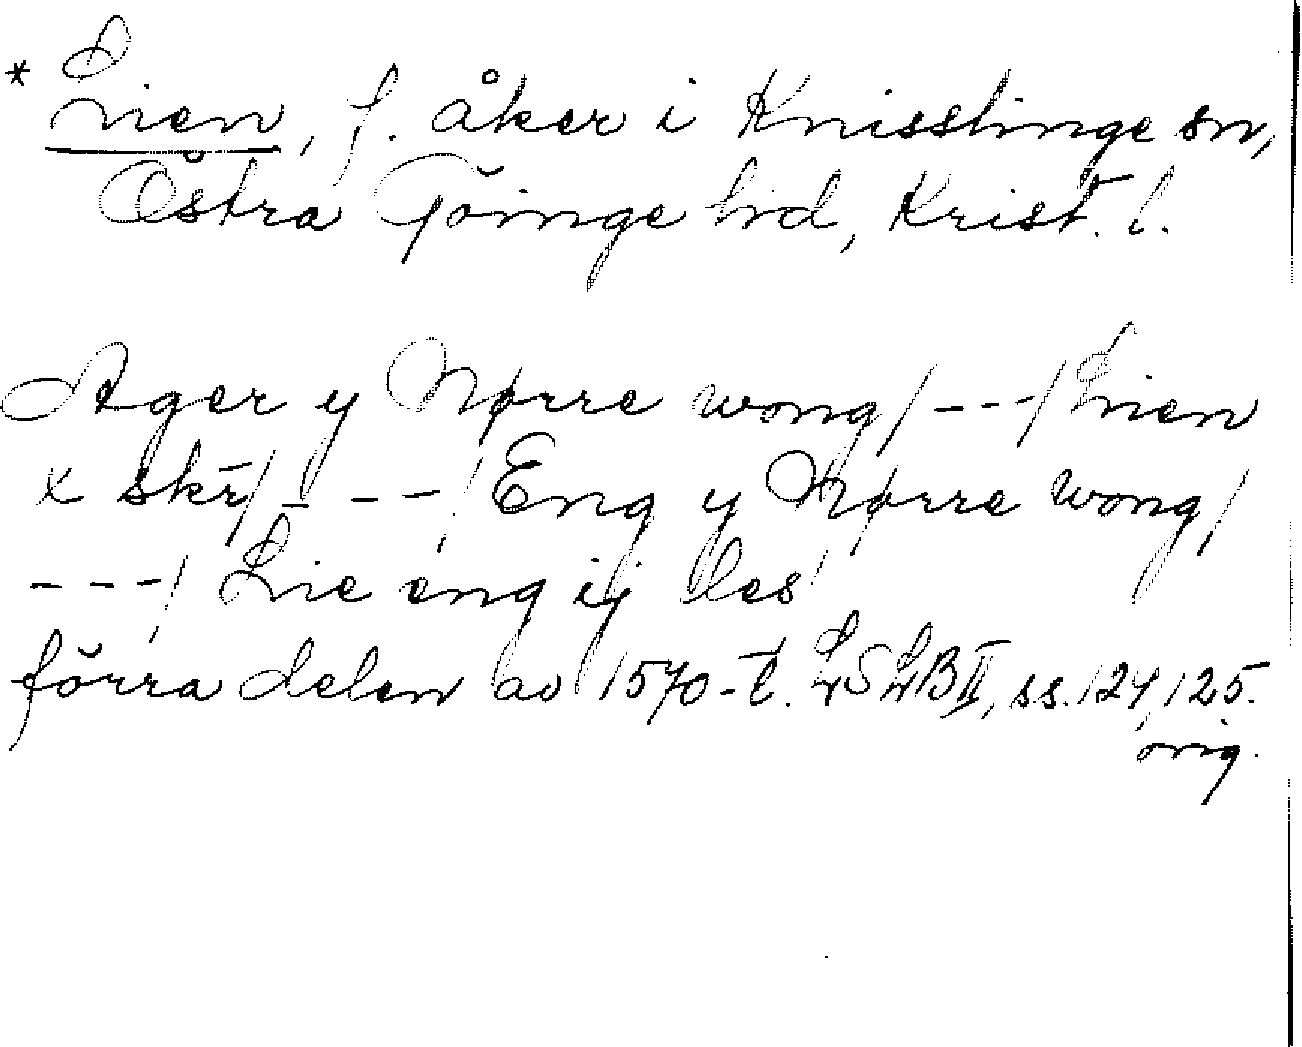 * Lien, f. åker i Knisslinge sn,
Östra Göinge hd, Krist. l.
Ager y Nørre wong/---/Lien
x skr̄/---/Eng y Nørre wong/
---/ Lie eng ij les
förra delen av 1570-t. LSLB II, ss. 124, 125.
orig.